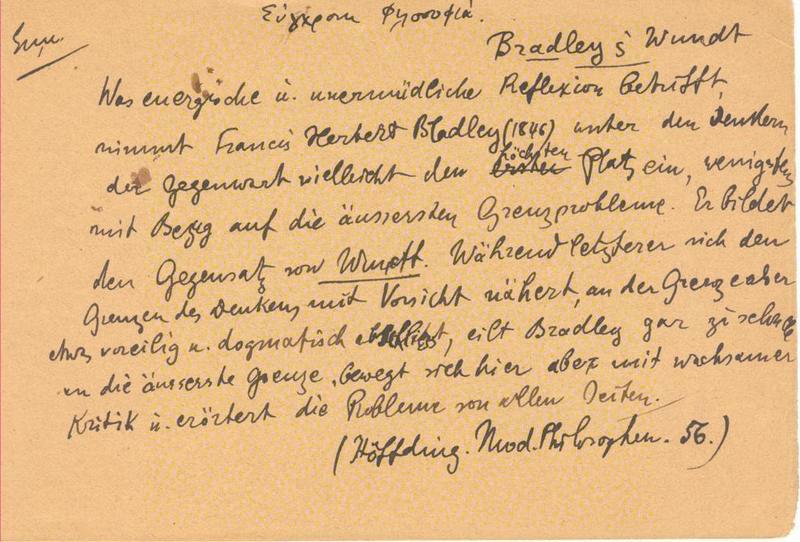 Σύγχρονη Φιλοσοφία.
Σημ.
Bradley ś Wundt
Was energische u. unermüdliche Reflexion betrifft,
nimmt Francis Herbert Bradley (1846) unter den Denkern
der Gegenwart vielleicht den höchsten Platz ein, wenigstens
mit Bezug auf die äussersten Grenzprobleme. Er bildet
den Gegensatz von Wundt. Während letzterer sich den
Grenzen des Denkens mit Vorsicht nähert, an der Grenze aber
etwas voreilig u. dogmatisch abschliesst, eilt Bradley gar zu schnell
an die äusserste Grenze, bewegt sich hier aber mit wachsamer
Kritik u. erörtert die Probleme von allen Seiten.
(Höffding. Mod. Philosophen. 56.)